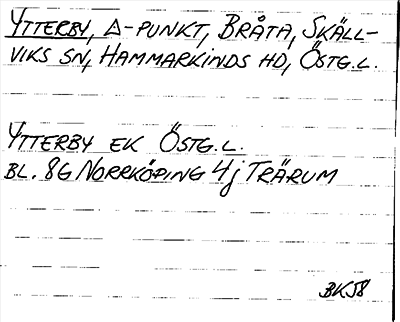 YTTERBY, Δ-PUNKT, BRÅTA, SKÄLL-
VIKS SN, HAMMARKINDS HD, ÖSTG.L.
YTTERBY EK ÖSTG.L.
BL. 8G NORRKÖPING 4j TRÄRUM
BKJ8